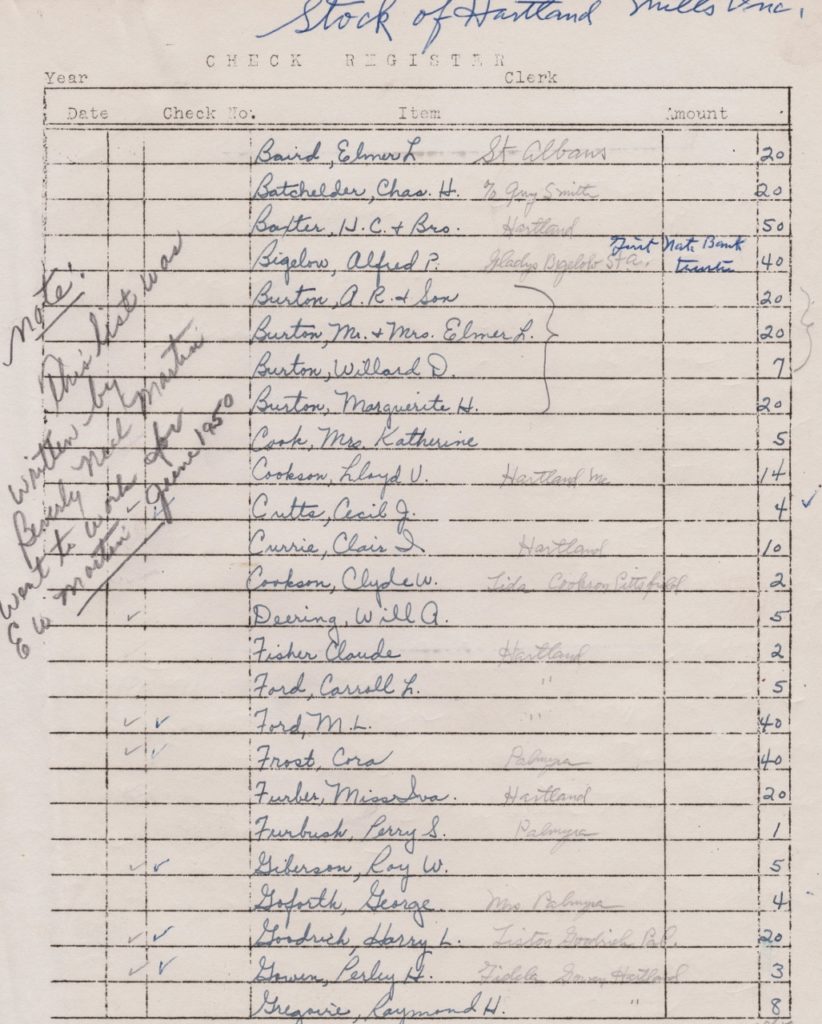 Stock of Hartland Mills Inc.
CHECK REGISTER
Year Clerk
Date Check No. Item Amount
Baird, Elmer L St Albans 20
Batchelder, Chas. H. % Guy Smith 20
Baxter, H.C. & Bro. Hartland 50
First Natl Bank
Bigelow, Alfred P. Gladys Bigelow St A. 40
Burton, A.R. & Son 20
Burton, Mr. & Mrs. Elmer L. 20
Burton, Willard D. 7
Burton, Marguerite H. 20
Cook, Mrs. Katherine 5
Cookson, Lloyd V. Hartland Me 14
Cutts, Cecil J. 4 ✓
Currie, Clair I. Hartland 10
Cookson, Clyde W. Lida Cookson Pittsfield 2
✓ Deering, Will A. 5
Fisher Claude Hartland 2
Ford, Carroll L. " 5
✓ ✓ Ford, M.L. " 40
✓ ✓ Frost, Cora Palmyra 40
Furber, Miss Iva. Hartland 20
Furbush, Perry S. Palmyra 1
✓ ✓ Giberson, Roy W. 5
Goforth, George Mrs Palmyra 4
✓ ✓ Goodrich, Harry L. Liston Goodrich 20
✓ ✓ Gowen, Perley H. Gowen Hartland 3
Gregoire, Raymond H. " 8
Note!
This list was
written by
Beverly Neal Martin
went to work for
E W Martin - June 1950